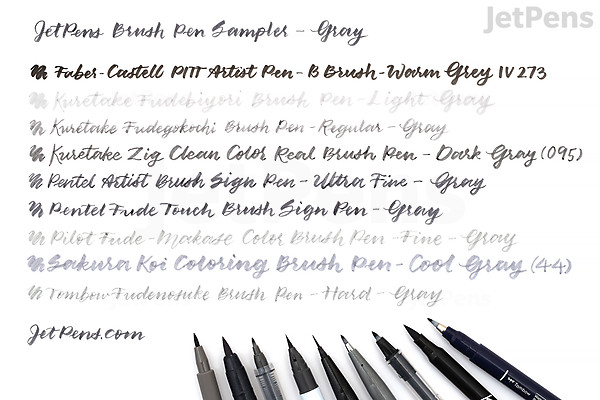 JetPens
JetPens Brush Pen Sampler - Gray
Faber-Castell PITT Artist Pen - B Brush - Warm Grey IV 273
Kuretake Fudebiyori Brush Pen - Light Gray
Kuretake Fudegokochi Brush Pen - Regular - Gray
Kuretake Zig Clean Color Real Brush Pen - Dark Gray (095)
Pentel Artist Brush Sign Pen - Ultra Fine - Gray
Pentel Fude Touch Brush Sign Pen - Gray
Pilot Fude-Makase Color Brush Pen - Fine - Gray
Sakura Koi Coloring Brush Pen - Cool Gray (44)
Tombow Fudenosuke Brush Pen - Hard - Gray
JetPens.com
Tombow